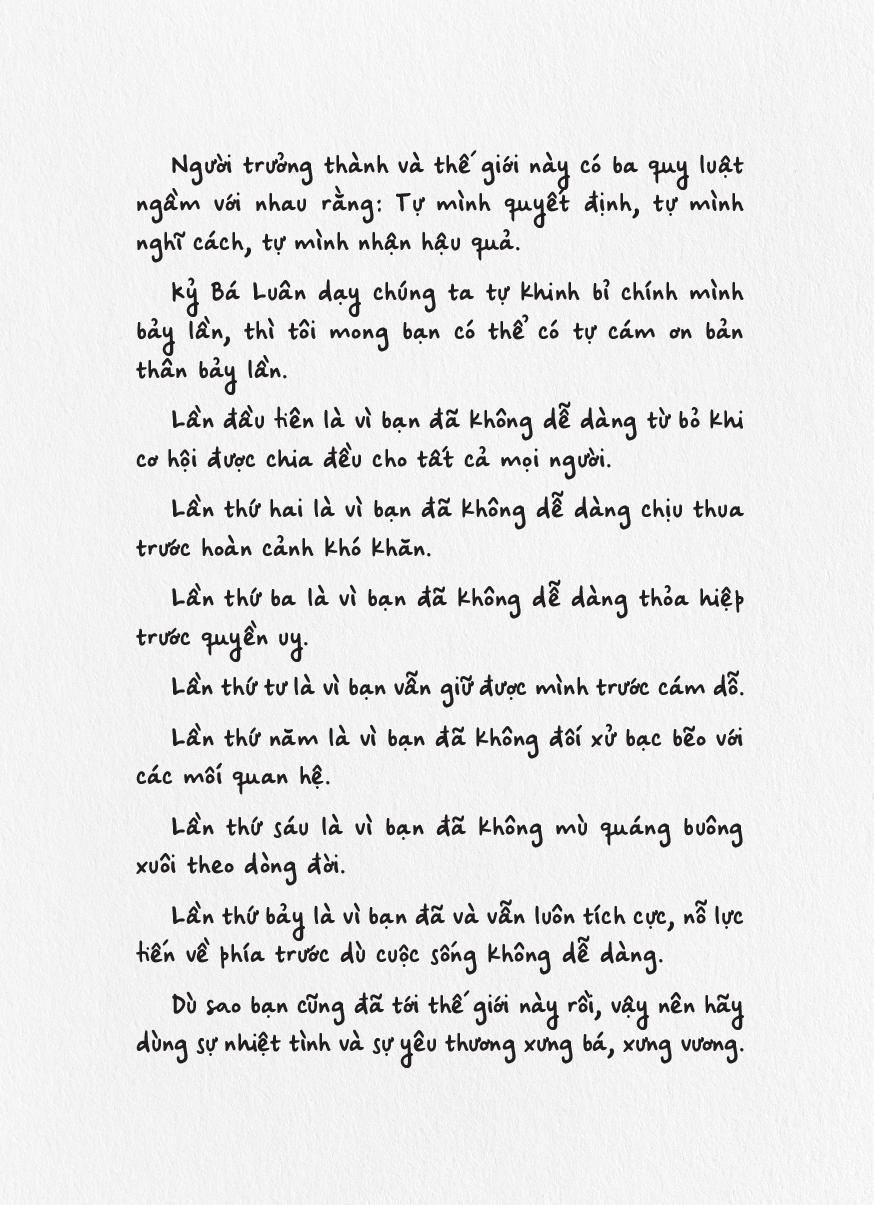 Người trưởng thành và thế giới này có ba quy luật
ngầm với nhau rằng: Tự mình quyết định, tự mình
nghĩ cách, tự mình nhận hậu quả.
Kỷ Bá Luân dạy chúng ta tự khinh bỉ chính mình
bảy lần, thì tôi mong bạn có thể có tự cám ơn bản
thân bảy lần.
Lần đầu tiên là vì bạn đã không dễ dàng từ bỏ khi
cơ hội được chia đều cho tất cả mọi người.
Lần thứ hai là vì bạn đã không dễ dàng chịu thua
trước hoàn cảnh khó khăn.
Lần thứ ba là vì bạn đã không dễ dàng thỏa hiệp
trước quyền uy.
Lần thứ tư là vì bạn vẫn giữ được mình trước cám dỗ.
Lần thứ năm là vì bạn đã không đối xử bạc bẽo với
các mối quan hệ.
Lần thứ sáu là vì bạn đã không mù quáng buông
xuôi theo dòng đời.
Lần thứ bảy là vì bạn đã và vẫn luôn tích cực, nỗ lực
tiến về phía trước dù cuộc sống không dễ dàng.
Dù sao bạn cũng đã tới thế giới này rồi, vậy nên hãy
dùng sự nhiệt tình và sự yêu thương xưng bá, xưng vương.